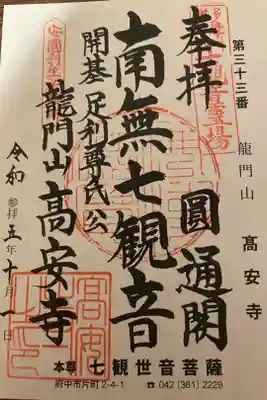 第三十三番
龍門山
髙安寺
奉拝
圓通閣
南無七観音
開基足利尊氏公
安國利生
龍門山高安寺
令和五年十月一日
参拝
本尊 七観世音菩薩
府中市片町2-4-1 ☎ 042 (361) 2229